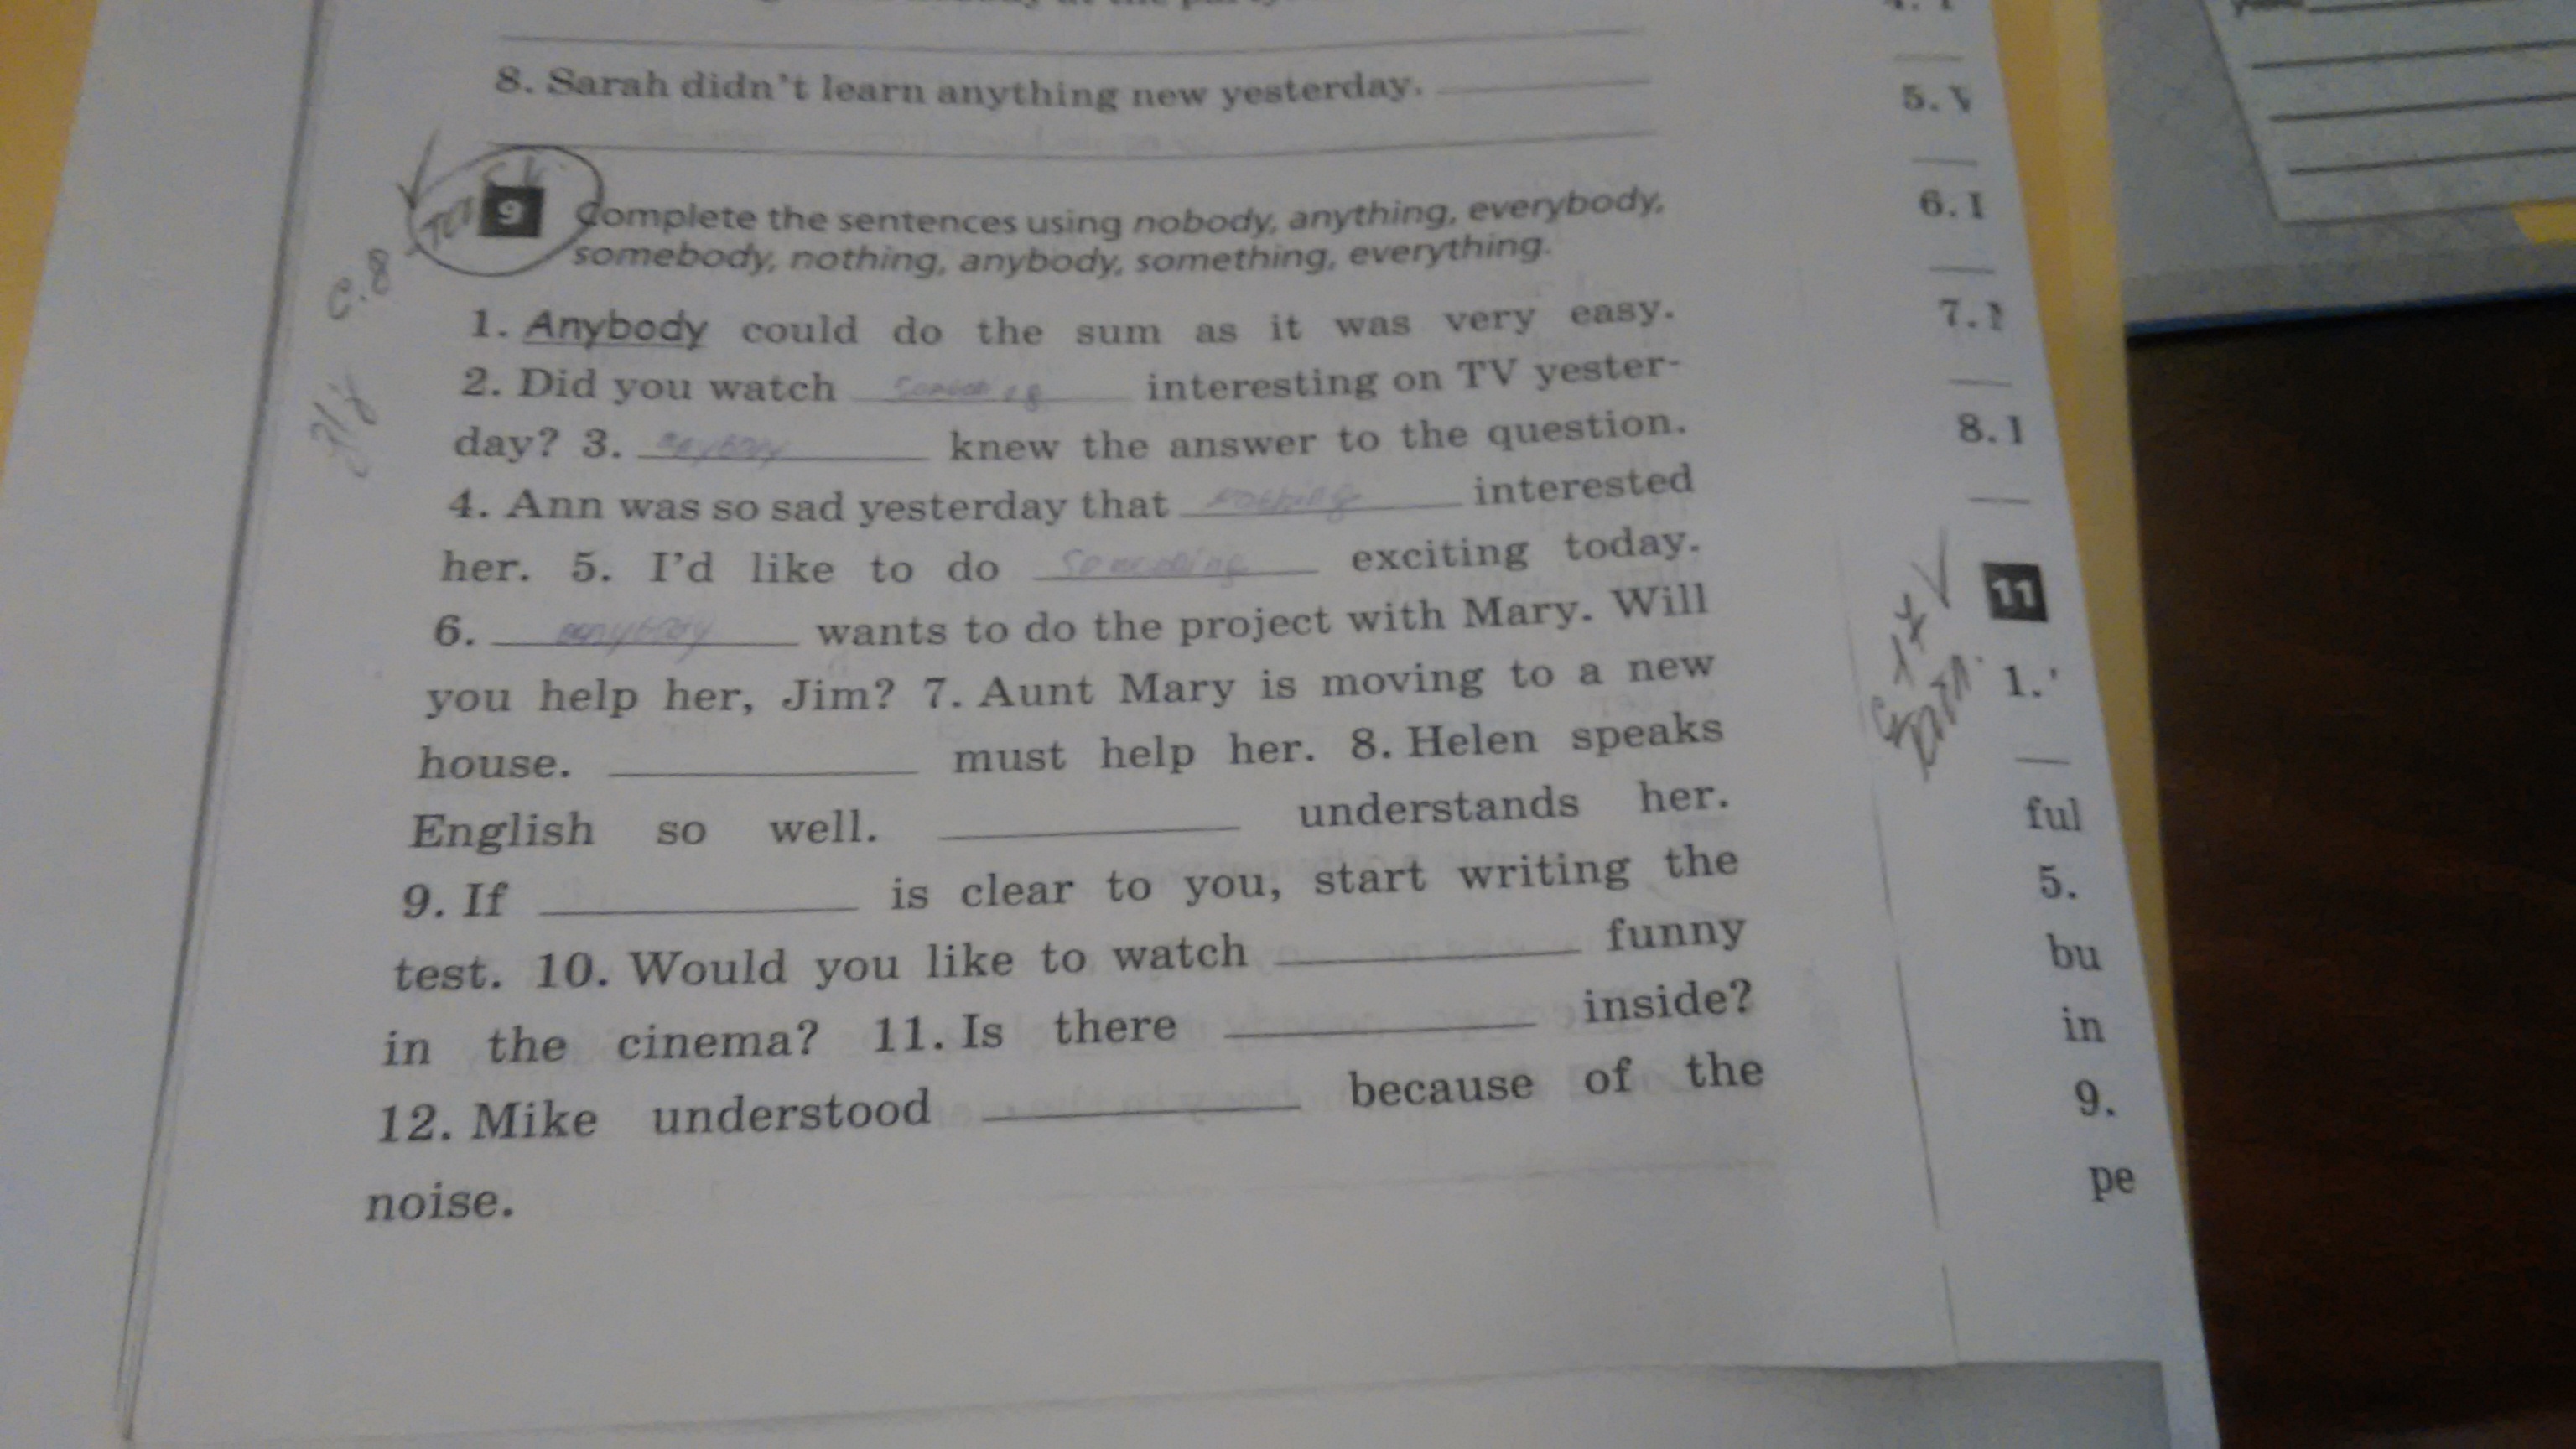 8. Sarah didn't learn anything new yesterday.
9 Complete the sentences using nobody, anything, everybody,
somebody, nothing, anybody, something, everything.
c.8
1. Anybody could do the sum as it was very easy.
2. Did you watch interesting on TV yester-
day? 3. anybody knew the answer to the question.
4. Ann was so sad yesterday that nothing interested
her. 5. I'd like to do something exciting today.
6. anybody wants to do the project with Mary. Will
you help her, Jim? 7. Aunt Mary is moving to a new
house. must help her. 8. Helen speaks
English so well. understands her.
9. If is clear to you, start writing the
test. 10. Would you like to watch funny
in the cinema? 11. Is there inside?
12. Mike understood because of the
noise.
5.
6. I
7.
8.
11
1.
ful
5.
bu
in
9.
pe